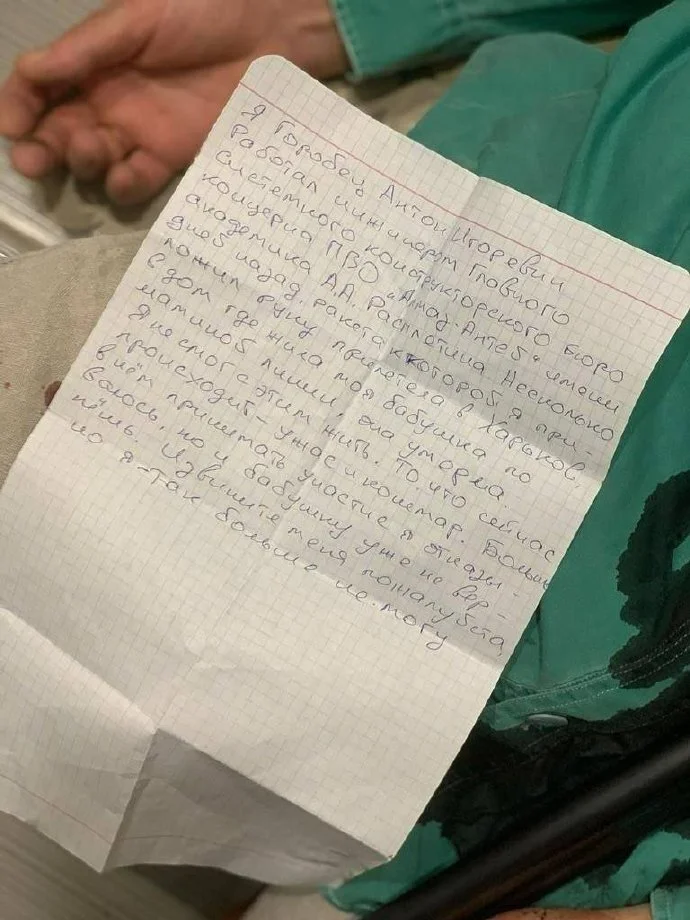 Я Горобец Антон Игоревич
Работал инжинером Главного
системного конструкторского Бюро
концерна ПВО "Алмаз-Антей" имени
академика А.А. Расплетина Несколько
дней назад, ракета к которой я при-
ложил руку прилетела в Харьков.
в дом где жила моя бабушка по
маминой линии, она умерла.
Я не смог с этим жить. То что сейчас
происходит - ужас и кошмар. Больше
в нём принимать участие я отказы-
ваюсь, но и бабушку уже не вер-
нёшь. Извините меня пожалуйста,
но я так больше не могу